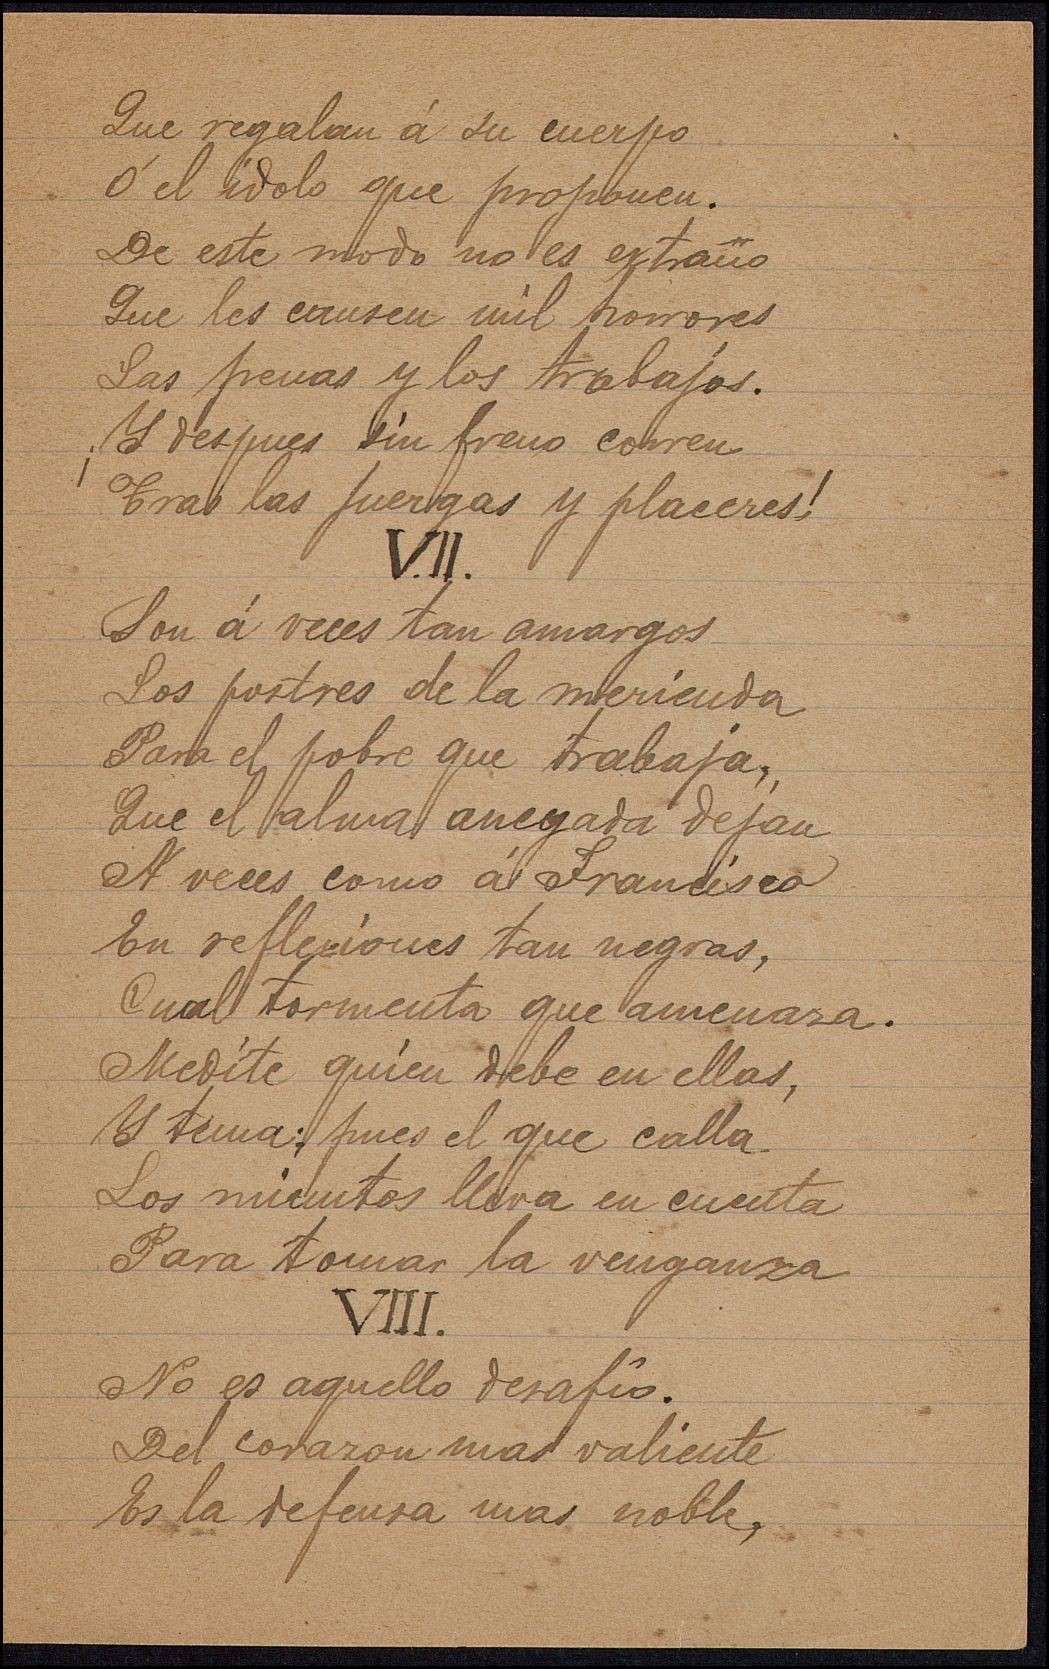 Que regalan á su cuerpo
Ó el idolo que proponen.
De este modo no es extraño
Que les causen mil horrores
Las penas y los trabajos.
¡Y despues sin freno corren
Tras las juergas y placeres!
VII.
Son á veces tan amargos
Los postres de la merienda
Para el pobre que trabaja,
Que el alma anegada dejan
A veces como á Francisco
En reflexiones tan negras,
Cual tormenta que amenaza.
Medite quien debe en ellas,
Y tema; pues el que calla
Los minutos lleva en cuenta
Para tomar la venganza
VIII.
No es aquello desafío.
Del corazon mas valiente
Es la defensa mas noble,